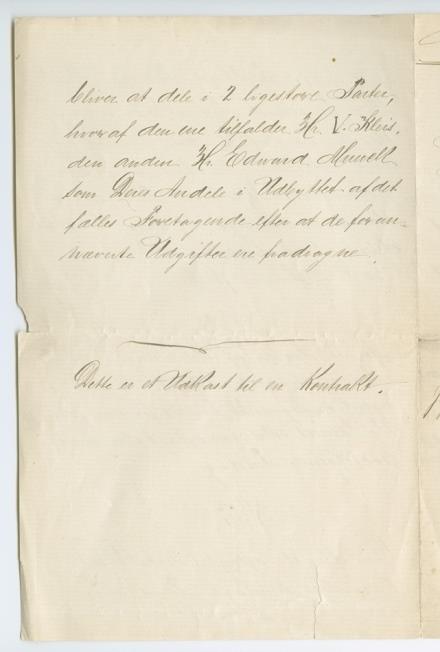 bliver at dele i 2 ligestore Parter,
hvoraf den ene tilfalder Hr. V. Kleis,
den anden Hr. Edvard Munch
som Deres Andele i Udbyttet af det
fælles Foretagende efter at de foran-
nævnte Udgifter ere fradragne.
Dette er et Udkast til en Kontrakt.